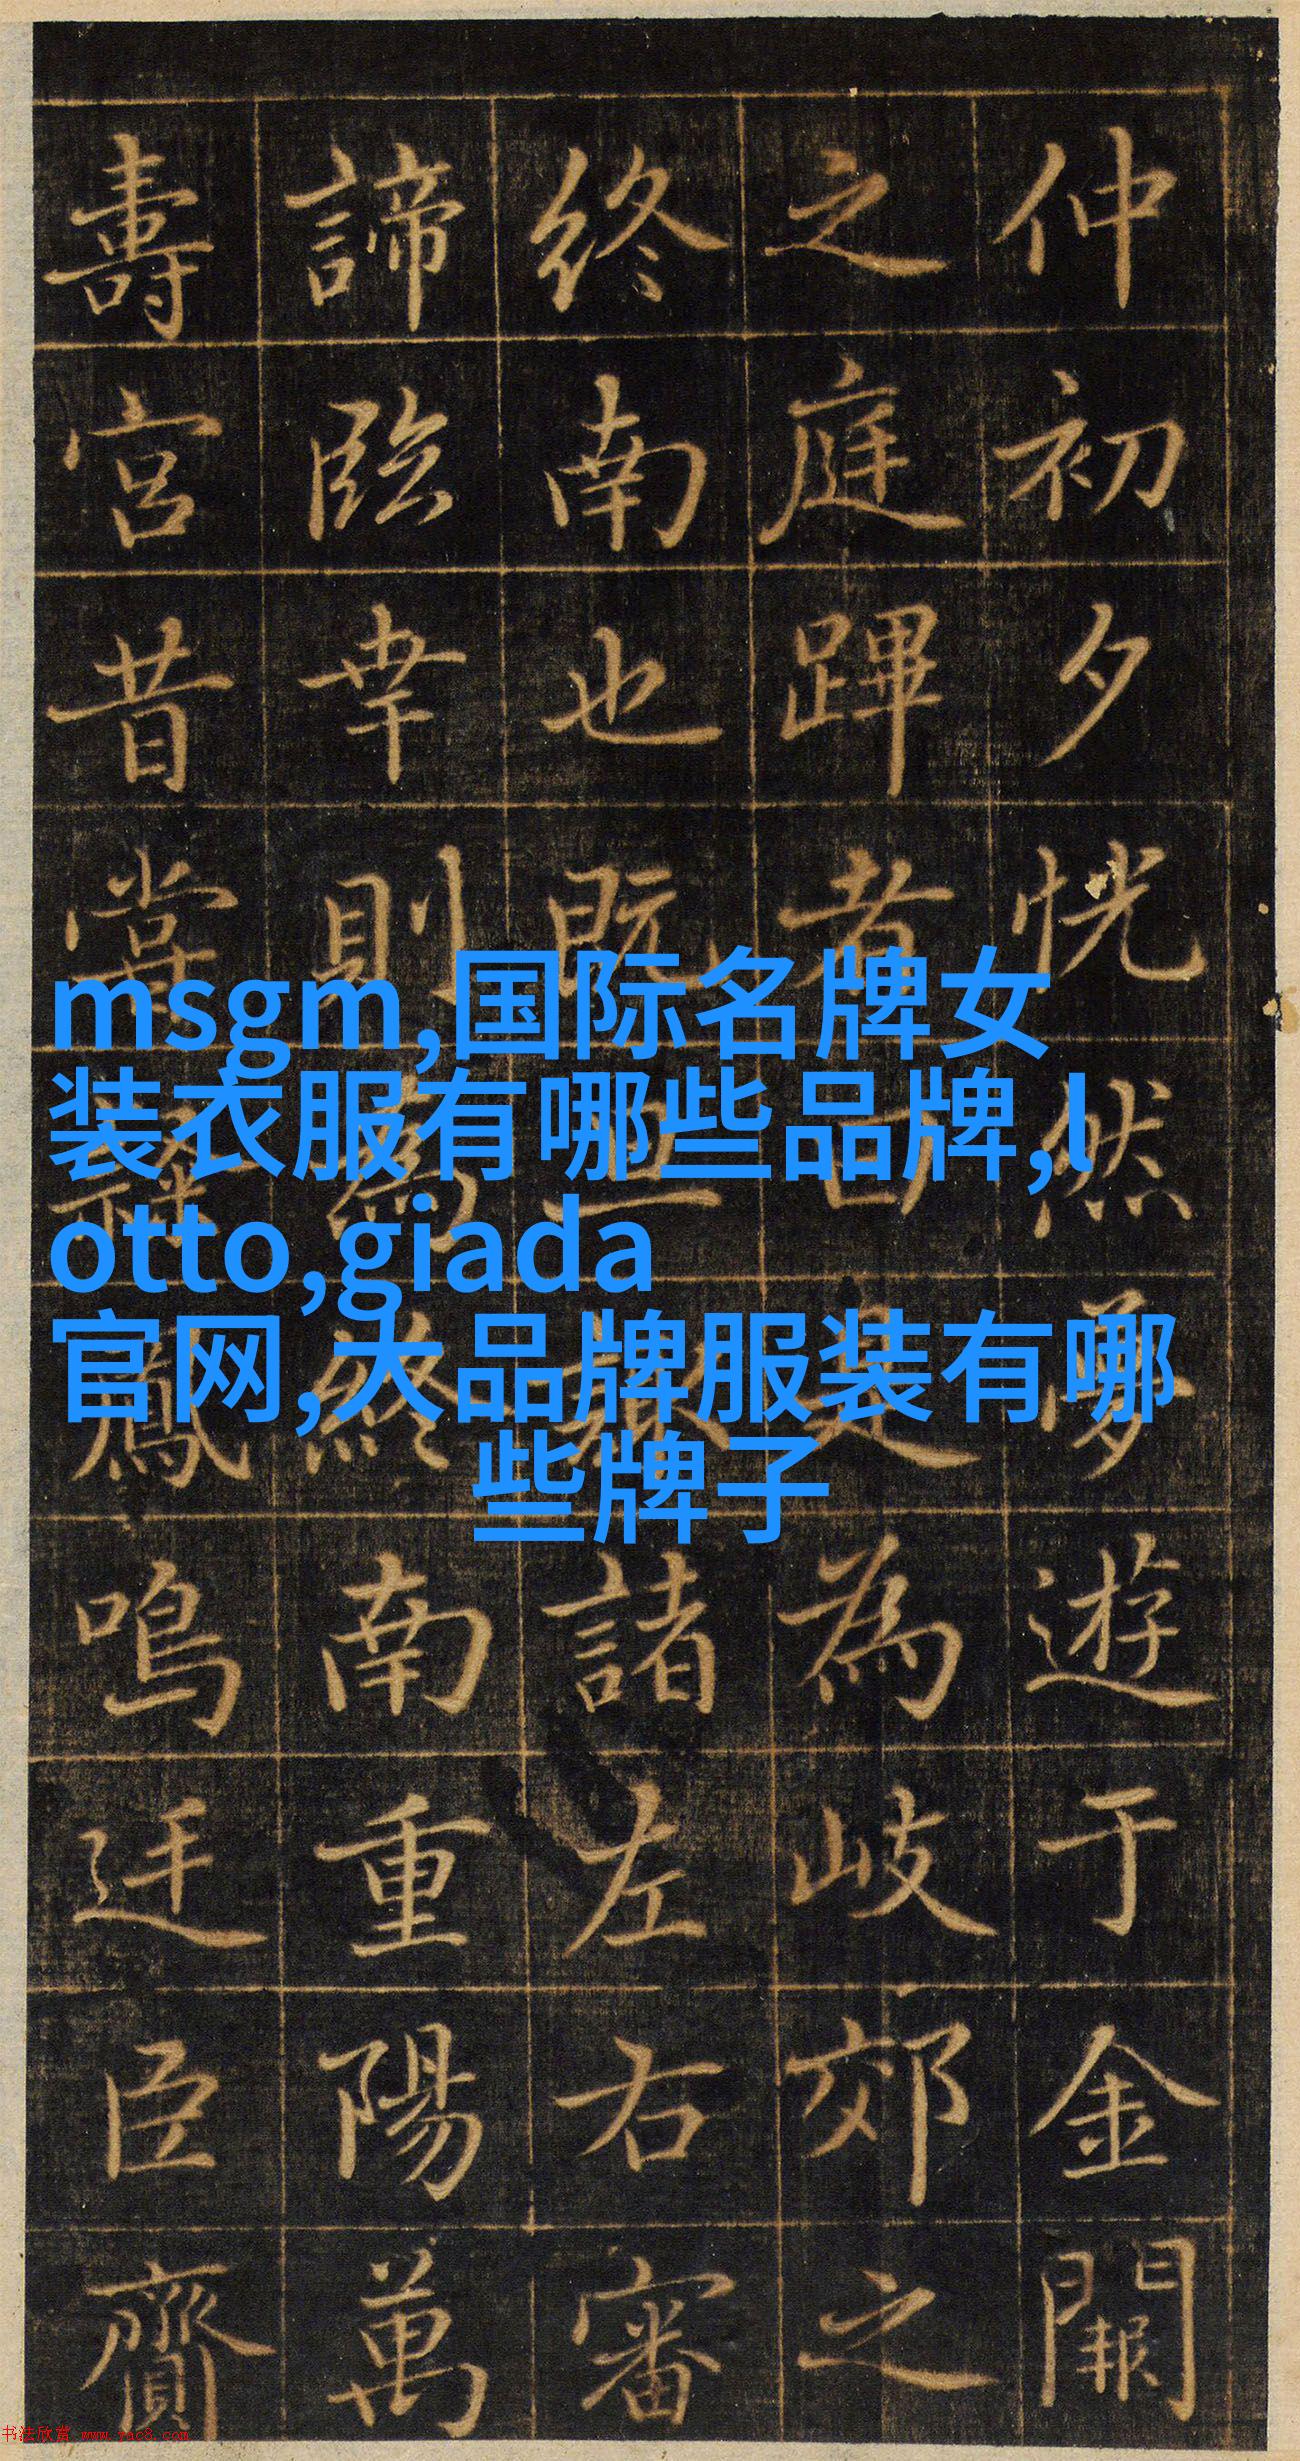 仲初夕恍然夢遊于金闕
之庭蹕者曰是為岐郊之
終南也既諸左右審
諦臨幸則為終南重陽萬
壽宮昔嘗鳳鳴迋臣齎
msgm,国际名牌女
装衣服有哪些品牌,l
otto,giada
官网,大品牌服装有哪
些牌子
书法欣赏 www.yac8.com